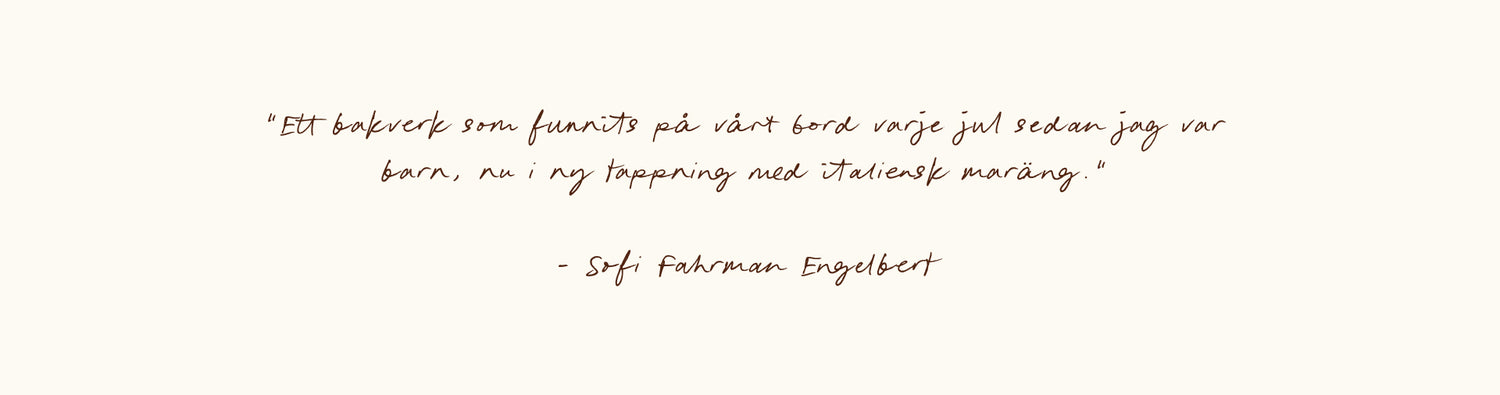 "Ett bakverk som funnits på vårt bord varje jul sedan jag var
barn, nu i ny tappning med italiensk maräng."
- Sofi Fahrman Engelbert